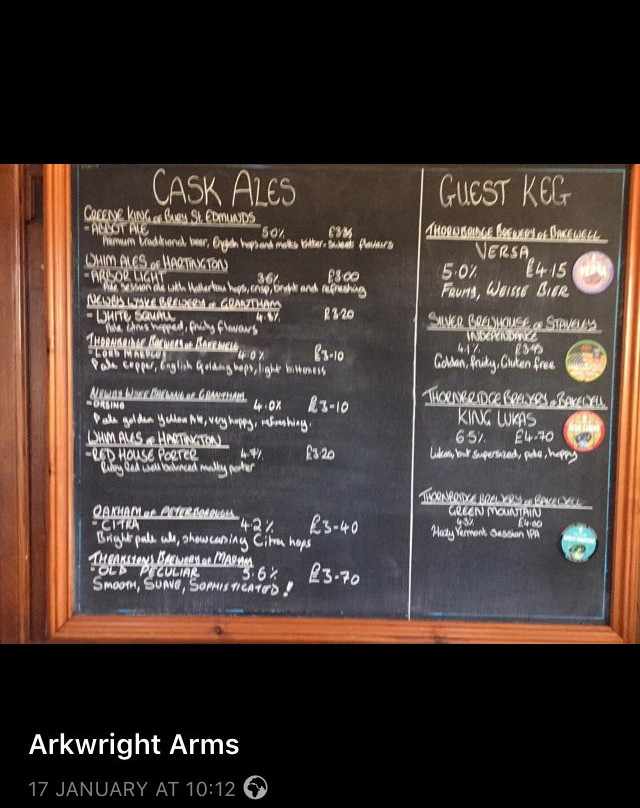 CASK ALES
GREENE KING of BURY St. EDMUNDS
- ABBOT ALE 5.0%
Premium traditional beer, English hops and malts bitter-sweet flavours
WHIM ALES of HARTINGTON
- ARBOR LIGHT 3.6% £3.00
session ale with hops, crisp, bright and refreshing
NEWBY WYKE BREWERY of GRANTHAM
- WHITE SQUALL 4.8% £3.20
Pale citrus hopped, fruity flavours
THORNBRIDGE BREWERY of BAKEWELL
- LORD MARPLES 4.0% £3-10
Pale copper, English Golding hops, light bitterness
NEWBY WYKE BREWERY of GRANTHAM
- ORSINO 4.0% £3-10
Pale golden yellow Ale, very hoppy, refreshing.
WHIM ALES of HARTINGTON
- RED HOUSE PORTER £3.20
Ruby Red well balanced malty porter
OAKHAM of PETERBOROUGH
- CITRA 4.2% £3-40
Bright pale ale, showcasing Citra hops
THEAKSTONS BREWERY of MASHAM
- OLD PECULIAR 5.6% £3-70
SMOOTH, SUAVE, SOPHISTICATED!
GUEST KEG
THORNBRIDGE BREWERY of BAKEWELL
VERSA
5.0% £4.15
FRUITY, WEISSE BIER
SILVER BREWHOUSE of STAVELEY
INDEPENDANCE
4.1% £3.95
Golden, fruity, Gluten free
THORNBRIDGE BREWERY of BAKEWELL
KING LUKAS
6.5% £4.70
Lukas, but supersized, pale, hoppy
THORNBRIDGE BREWERY of BAKEWELL
GREEN MOUNTAIN
4.3% £4.00
Hazy Vermont Session IPA
Arkwright Arms
17 JANUARY AT 10:12